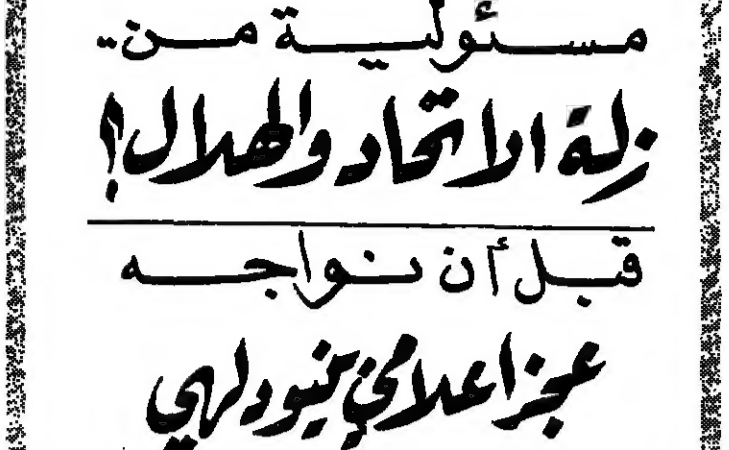 مسئولية من..
زلة الاتحاد والهلال؟
قبل أن نواجه
عجزا علامي نيودلهي